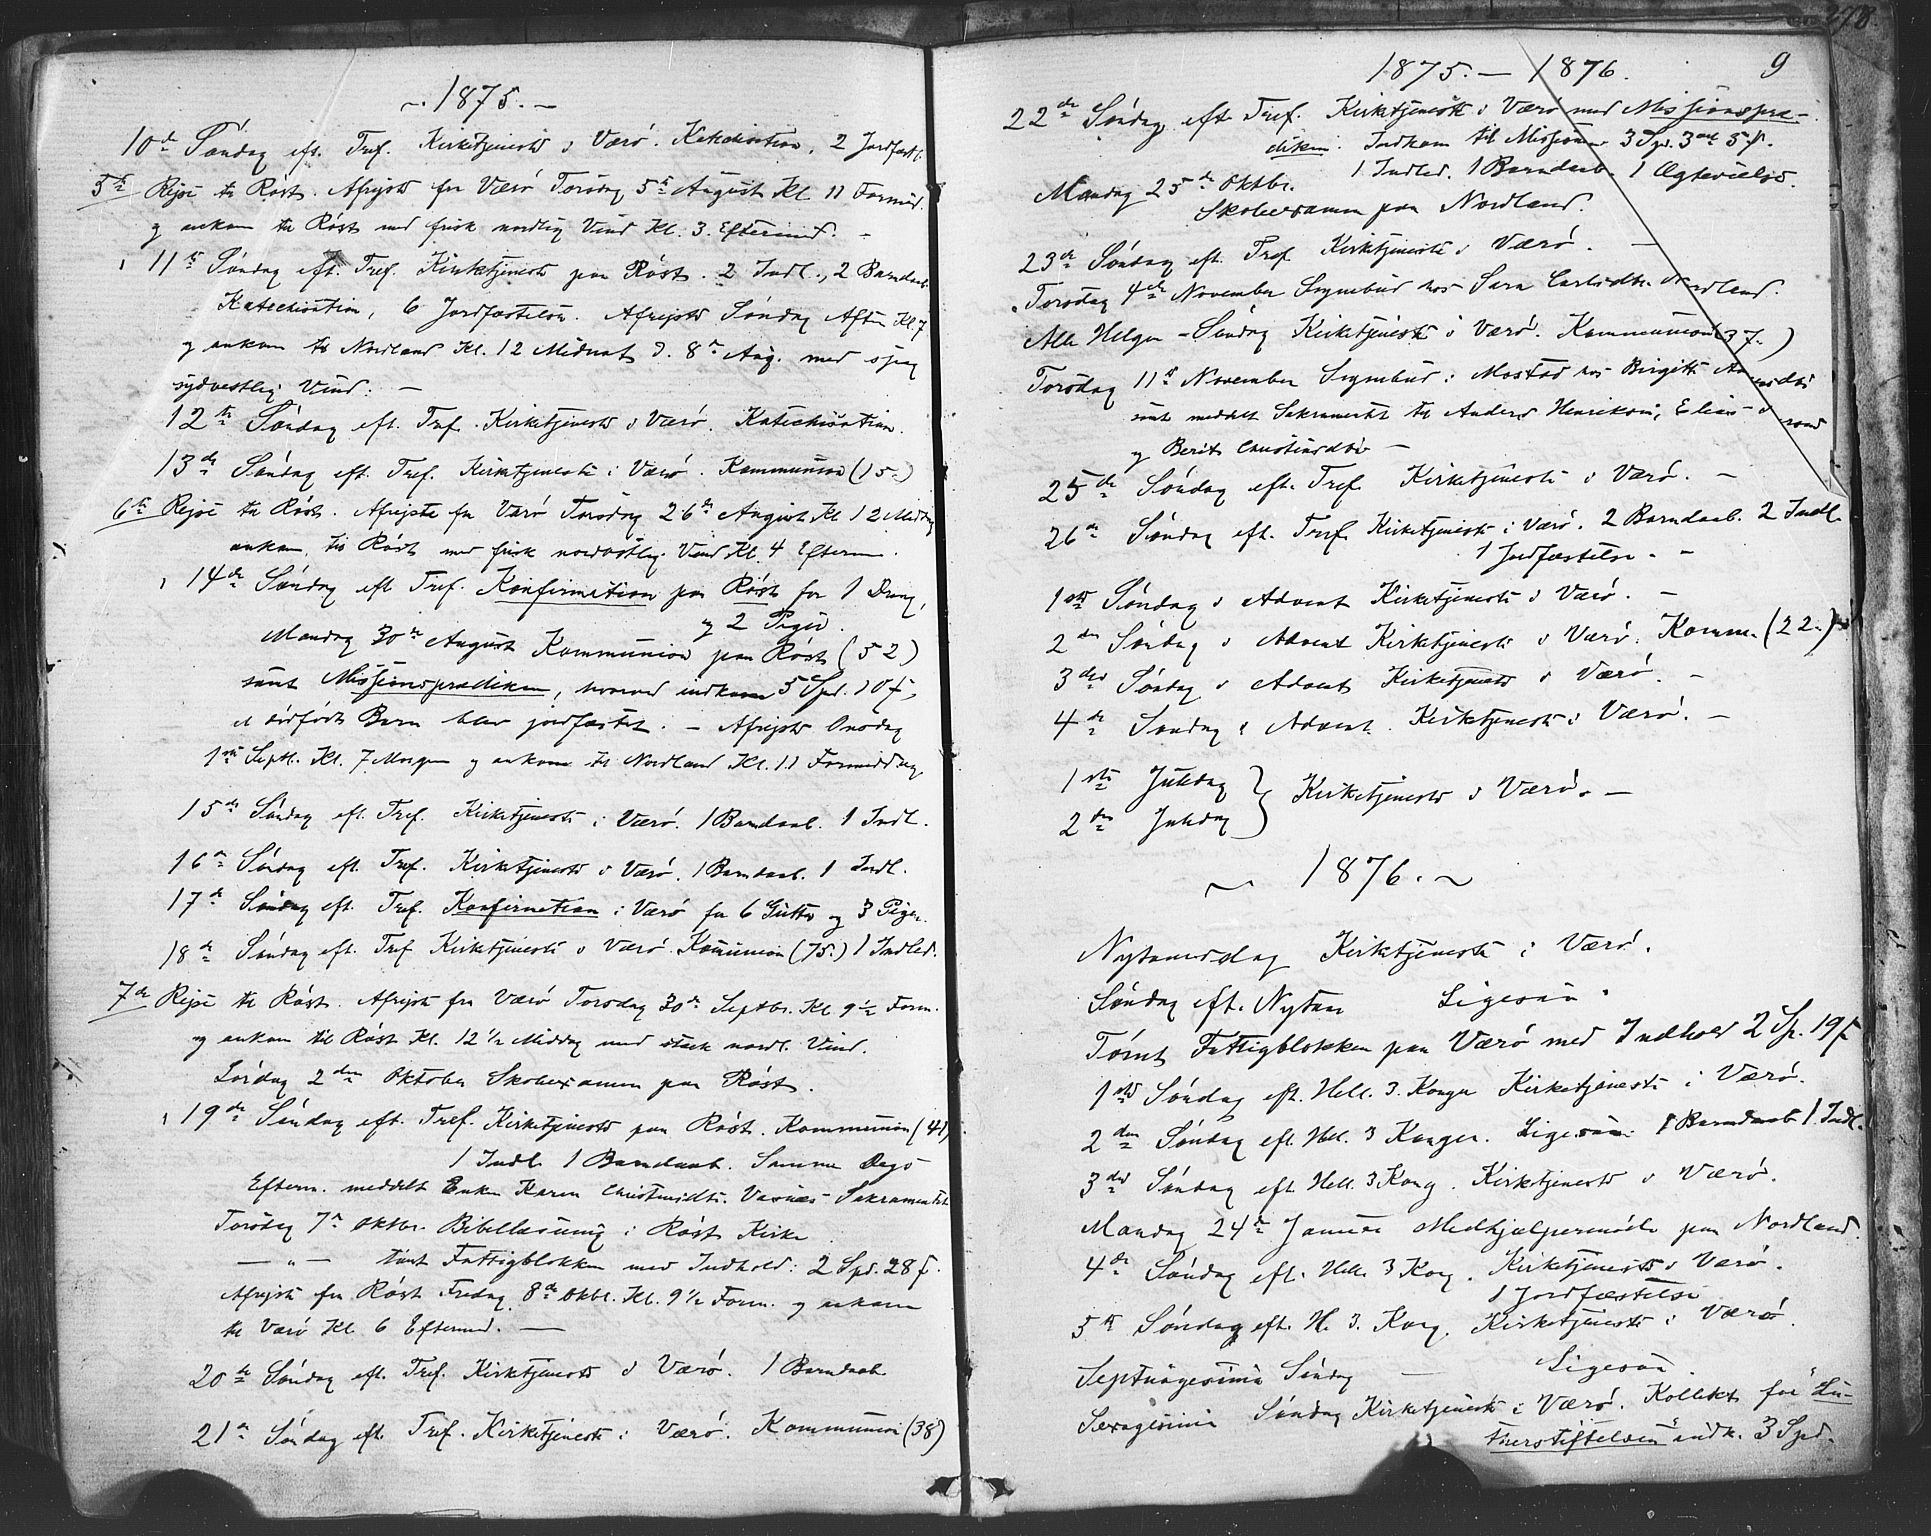 ~ 1875. ~
10de Søndag eft. Tref. Kirketjeneste i Værø. Katekisation, 2 Jordfæst.
5te Rejse til Røst. Afrejste fra Værø Torsdag 5te August Kl. 11 Formid.
og ankom til Røst med frisk nordlig Vind Kl. 3 Eftermid. –
11te Søndag eft. Tref. Kirketjeneste paa Røst. 2 Indl., 2 Barndaab.
Katechisation, 6 Jordfæstelser. Afrejste Søndag Aften Kl. 7
og ankom til Nordland Kl. 12 Midnat d. 8de Aug. med
sydvestlig Vind. –
12te Søndag eft. Tref. Kirketjeneste i Værø. Katechisation.
13de Søndag eft. Tref. Kirketjeneste i Værø. Kommunion (15.)
6te Rejse til Røst. Afrejste fra Værø Torsdag 26de August Kl 12 Middag
ankom til Røst med frisk nordostlig Vind Kl. 4 Efterm.
14de Søndag eft Tref. Konfirmation paa Røst for 1 Dreng,
og 2 Piger.
Mandag 30te August Kommunion paa Røst (52)
samt Missionsprædiken, hvorved indkom 5 Spd. 10 ß,
et dødfødt Barn blev jordfæstet. – Afrejste Onsdag
1ste Septbr. Kl. 7 Morgen og ankom til Nordland Kl. 11 Formiddag.
15de Søndag eft. Tref. Kirketjeneste i Værø. 1 Barndaab. 1 Indl.
16de Søndag eft. Tref. Kirketjeneste i Værø. 1 Barndaab. 1 Indl.
17de Søndag eft. Tref. Konfirmation i Værø for 6 Gutter og 3 Piger.
18de Søndag eft. Tref Kirketjeneste i Værø Kommunion (75.) 1 Indled.
7de Rejse til Røst. Afrejste fra Værø Torsdag 30te Septbr. Kl 9 1/2 Form.
og ankom til Røst Kl. 12 1/2 Middag med stærk nordl. Vind.
Lørdag 2den Oktober Skoleexamen paa Røst.
19de Søndag eft. Tref. Kirketjeneste paa Røst. Kommunion (41)
1 Indl. 1 Barndaab. Samme Dags
Efterm. meddelt Enken Karen Christensdtr. Sakramentet
Torsdag 7de Oktbr. Bibellæsning i Røst Kirke
— „ — tømt Fattigblokken med Indhold: 2 Spd. 28 ß.
Afrejste fra Røst Fredag 8de Oktbr. Kl. 9 1/2 Form. og ankom
til Værø Kl. 6 Eftermid. —
20de Søndag eft. Tref. Kirketjeneste i Værø. 1 Barndaab
21de Søndag eft. Tref. Kirketjeneste i Værø. Kommunion (38)
1875. — 1876.
9
22de Søndag eft. Tref. Kirketjeneste i Værø med Missionspræ-
diken. Indkom til Missionen 3 Spd. 3 ort 5 ß.
1 Indled. 1 Barndaab. 1 Ægtevielse.
Mandag 25de Oktbr.
Skoleexamen paa Nordland.
23de Søndag eft. Tref Kirketjeneste i Værø. —
Torsdag 4de November Sognebud hos Sara Carlsdtr. Nordland.
Alle Helgen-Søndag Kirketjeneste i Værø. Kommunion (37.)
Torsdag 11te November Sognebud i Mostad hos Birgitte
samt meddelt Sakramentet til Anders Henriksen, Elias
og Berit Christiansdtr —
25de Søndag eft. Tref. Kirketjeneste i Værø. –
26de Søndag eft. Tref. Kirketjeneste i Værø. 2 Barndaab. 2 Indl.
1 Jordfæstelse. –
1ste Søndag i Advent Kirketjeneste i Værø. –
2den Søndag i Advent Kirketjeneste i Værø. Komm. (22.)
3die Søndag i Advent Kirketjeneste i Værø. –
4de Søndag i Advent. Kirketjeneste i Værø. –
1ste Juledag } Kirketjeneste i Værø. —
2den Juledag
~ 1876. ~
Nytaarsdag Kirketjeneste i Værø.
Søndag eft. Nytaar Ligesaa.
Tømt Fattigblokken paa Værø med Indhold 2 Sp. 19 ß
1ste Søndag eft. Hell. 3. Konger Kirketjeneste i Værø.
2den Søndag eft. Hell. 3 Konger. Ligesaa. 1 Barndaab 1 Indl.
3die Søndag eft Hell. 3 Kong. Kirketjeneste i Værø.
Mandag 24de Januar Medhjælpermøde paa Nordland.
4de Søndag eft. Hell. 3 Kong. Kirketjeneste i Værø.
1 Jordfæstelse
5te Søndag eft. H. 3. Kong. Kirketjeneste i Værø.
Septuagesima Søndag — Ligesaa
Sexagesima Søndag Kirketjeneste i Værø. Kollekt for "Lu-
therstiftelsen" indk. 3 Spd.